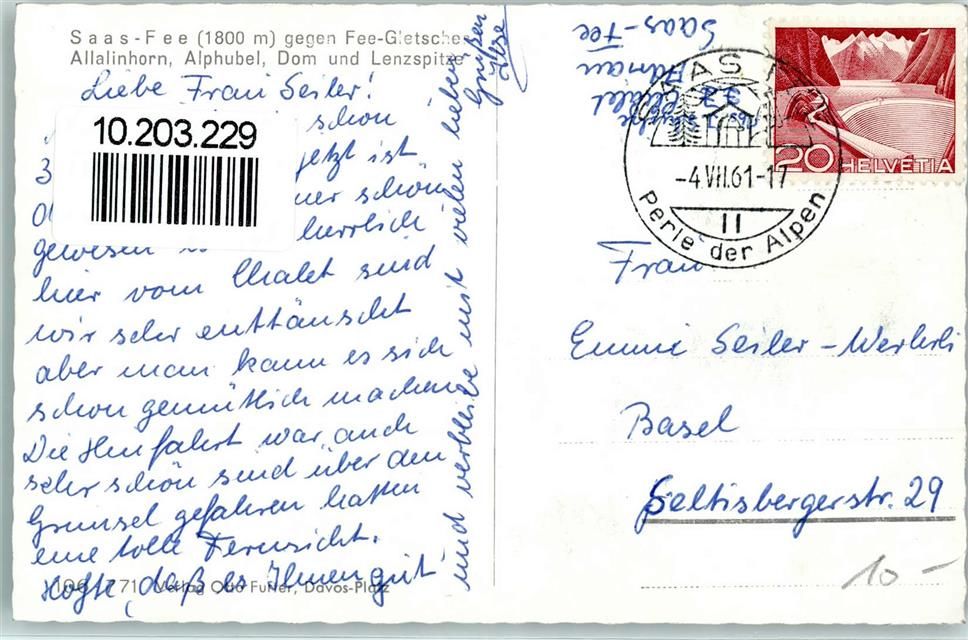 Saas-Fee (1800 m) gegen Fee-Gletscher
Allalinhorn, Alphubel, Dom und Lenzspitze
Liebe Frau Seiler!
10.203.229
schon
3 jetzt ist
schön
gewesen herrlich
hier vom Chalet sind
wir sehr enttäuscht
aber man kann es sich
schon gemütlich machen
Die Hinfahrt war auch
sehr schön sind über den
Grimsel gefahren hatten
eine tolle Fernsicht.
Hoffe, daß es Ihnen gut
und verbleibe mit vielen lieben
Grüßen
Verlag Otto Furter, Davos-Platz
Chalet
Saas-Fee
-4.VII.61-17
II
Perle der Alpen
20 HELVETIA
Frau
Emmi Seiler-Wehrli
Basel
Seltisbergerstr. 29
10-